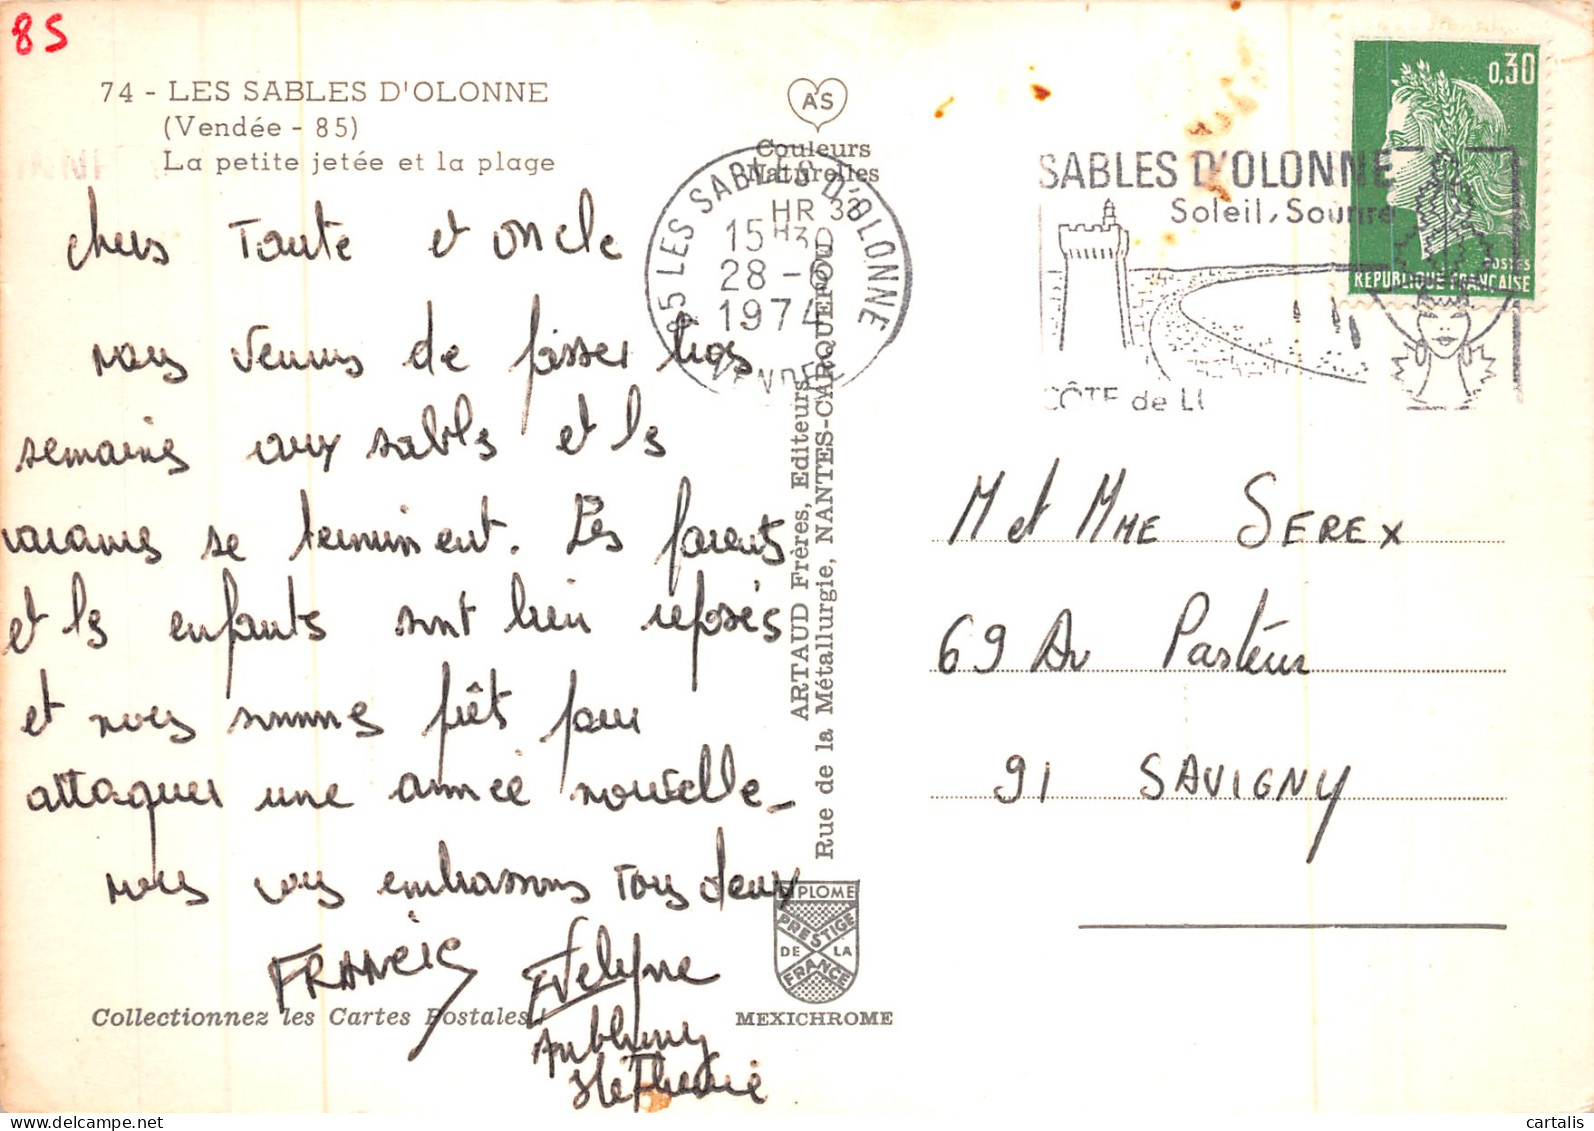 85
74 - LES SABLES D'OLONNE
(Vendée - 85)
La petite jetée et la plage
chers Tante et oncle
nous venons de passer trois
semaines aux sables et les
vacances se terminent. Les parents
et les enfants sont bien reposés
et nous sommes prêt pour
attaquer une année nouvelle_
nous vous embrassons Tous deux
FRANCIS Evelyne
Anthony
Stéphanie
Collectionnez les Cartes Postales!
AS
Couleurs
Naturelles
85 LES SABLES D'OLONNE
HR 33
15H30
28 -8
1974
VENDEE
ARTAUD Frères, Editeurs
Rue de la Métallurgie, NANTES-CARQUEFOU
DIPLOME
PRESTIGE
DE LA
FRANCE
MEXICHROME
SABLES D'OLONNE
Soleil, Sourire
CÔTE de LU
0,30
POSTES
REPUBLIQUE FRANCAISE
M et MME SEREX
69 Av Pasteur
91 SAVIGNY
delcampe.net
cartalis